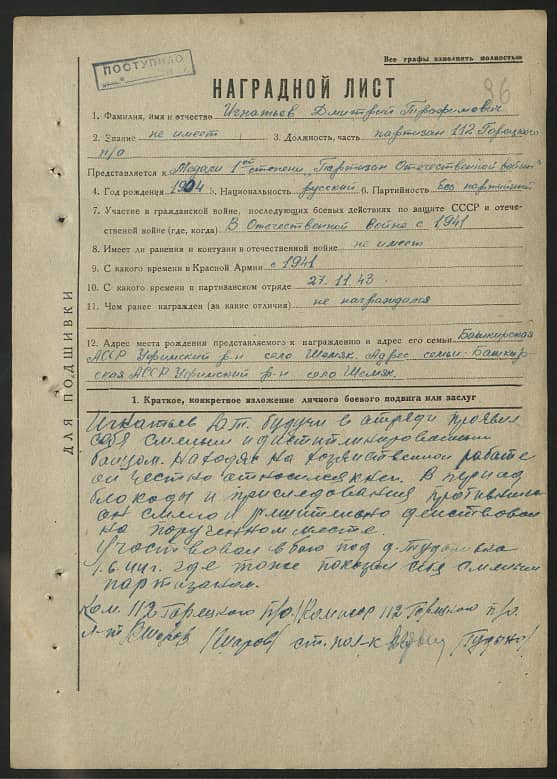 Все графы заполнять полностью
ПОСТУПИЛО
96
НАГРАДНОЙ ЛИСТ
1. Фамилия, имя и отчество Игнатьев Дмитрий Трафимович
2. Звание не имеет 3. Должность, часть партизан 112 Горецкого
п/о
Представляется к Медали 1ой степени "Партизан Отечественной войны"
4. Год рождения 1904 5. Национальность русский 6. Партийность без партийный
7. Участие в гражданской войне, последующих боевых действиях по защите СССР и отече-
ственной войне (где, когда) В Отечественной войне с 1941
8. Имеет ли ранения и контузии в отечественной войне не имеет
9. С какого времени в Красной Армии с 1941
10. С какого времени в партизанском отряде 27.11.43
11. Чем ранее награжден (за какие отличия) не награждался
12. Адрес места рождения представляемого к награждению и адрес его семьи Башкирская
АССР Уфимский р-н село Шемяк. Адрес семьи Башкир
ская АССР Уфимский р-н село Шемяк.
ДЛЯ ПОДШИВКИ
1. Краткое, конкретное изложение личного боевого подвига или заслуг
Игнатьев Д.Т. будучи в отряди проявил
себя смелым и дисциплинированым
бойцом. Находяс на хозяйственной работе
он честно относился к ней. В период
блокады и приследования противника
он смело и решительно действовал
на порученном месте.
Участвовал в бою под д.
1.6.44г. где тоже показал себя смелым
партизаном.
Ком. 112 Горецкого п/о. Комисар 112 Горецкого п/о.
л-т /Шаров/ ст. пол-к